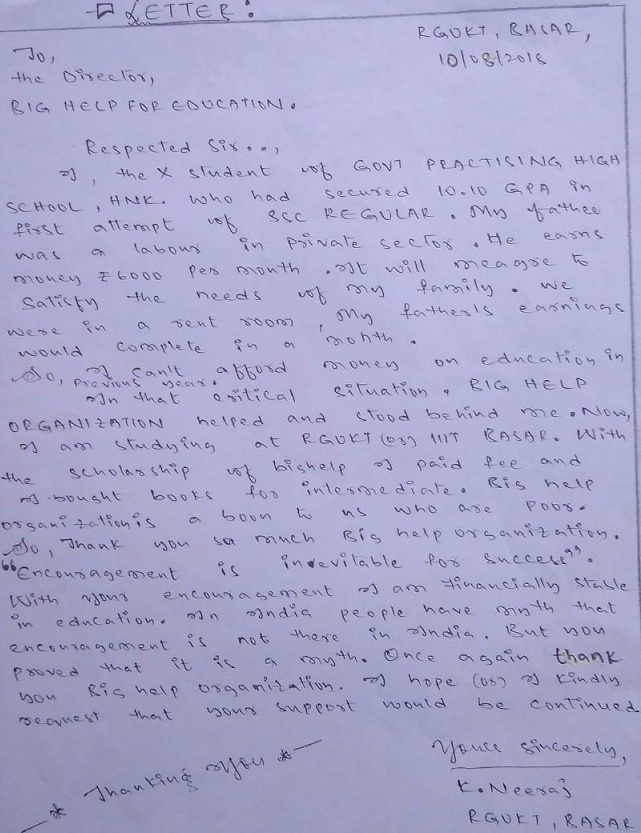 LETTER:
RGUKT, BASAR,
10/08/2018
To,
the Director,
BIG HELP FOR EDUCATION.
Respected Sir...,
I, the X student of GOVT PRACTISING HIGH
SCHOOL, HNK. who had secured 10.10 GPA in
first attempt of SSC REGULAR. My father
was a labour in private sector. He earns
money ₹6000 per month. It will meagre to
Satisfy the needs of my family. we
were in a rent room, My father's earnings
would complete in a month.
So, I can't afford money on education in
previous year.
In that critical situation, BIG HELP
ORGANIZATION helped and stood behind me. Now,
I am studying at RGUKT (or) IIIT BASAR. With
the scholarship of bighelp I paid fee and
I bought books for intermediate. Big help
organization is a boon to us who are poor.
So, Thank you so much Big help organization.
"Encouragement is inevitable for success".
With your encouragement I am financially stable
in education. In India people have myth that
encouragement is not there in India. But you
proved that it is a myth. Once again thank
you Big help organization. I hope (or) I kindly
request that your support would be continued
Yours sincerely,
* Thanking You *
K. Neeraj
RGUKT, BASAR